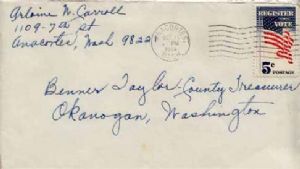 Arloine M. Carroll
1109-7th st
Anacortes, Wash 9822
ANACORTES
PM
1964
REGISTER
VOTE
5¢ POSTAGE
Benner Taylor-County Treasurer
Okanogan, Washington